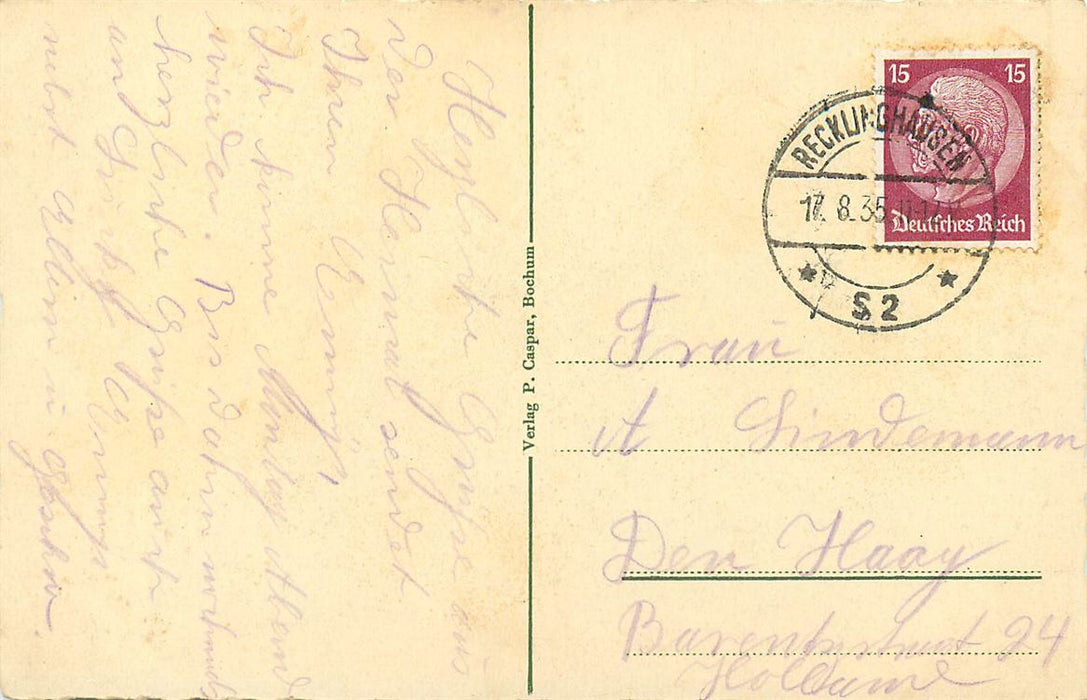 Herzliche Grüße aus
der Heimat sendet
Ihnen Emmy.
Ich komme Montag Abend
wieder. Bis dahin nochmals
herzliche Grüße auch
and Emmy
nebst Eltern u. Geschw.
Verlag P. Caspar, Bochum
15 15
Deutsches Reich
RECKLINGHAUSEN
17. 8. 35
S 2
Frau
A Lindemann
Den Haag
Barentzstraat 24
Holland